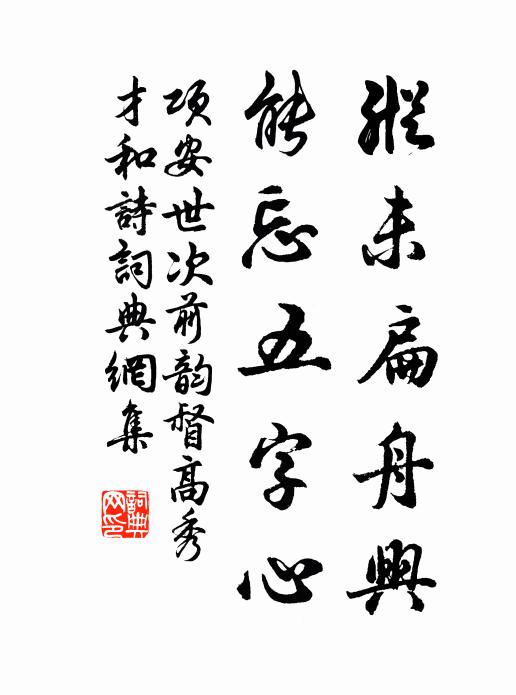 縱未扁舟興
能忘五字心
項安世次前韵督高秀
才和詩詞典網集
詞典网印